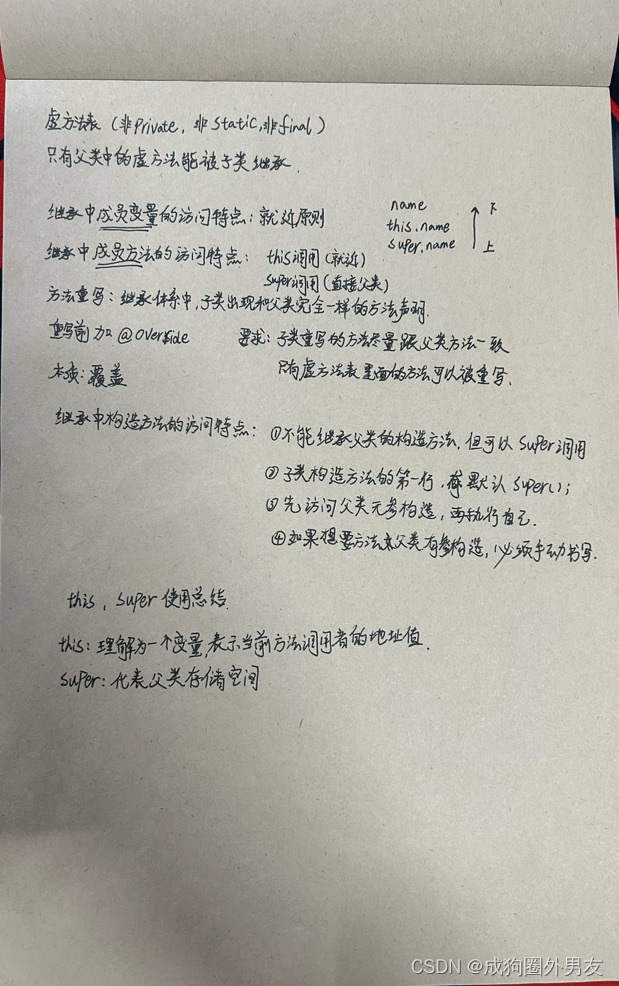 虚方法表（非private，非static，非final）
只有父类中的虚方法能被子类继承.
继承中成员变量的访问特点：就近原则
name 下
this.name
super.name 上
继承中成员方法的访问特点： this调用（就近）
super调用（直接父类）
方法重写：继承体系中，子类出现和父类完全一样的方法声明.
重写前加@Override 要求：子类重写的方法尽量跟父类方法一致
本质：覆盖 只有虚方法表里面的方法可以被重写.
继承中构造方法的访问特点： ①不能继承父类的构造方法，但可以super调用
②子类构造方法的第一行，有默认super();
③先访问父类无参构造，再执行自己.
④如果想要方法来父类有参构造，必须手动书写.
this，super使用总结
this：理解为一个变量，表示当前方法调用者的地址值.
super：代表父类存储空间
CSDN @成狗圈外男友